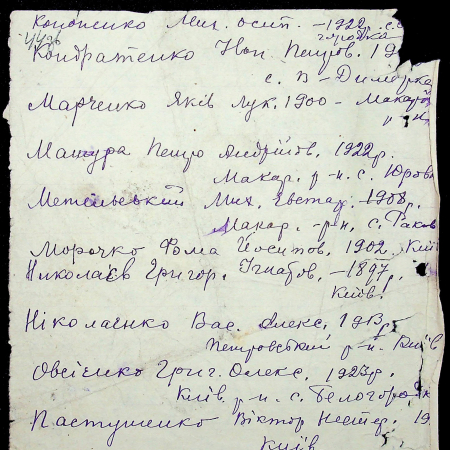 Кононенко Мих. Осип. -1922р. с.
Кондратенко Іван Петров. 19
с. В-Димерка
Марченко Яків Лук. 1900 - Макар
р-н
Мацура Петро Андрійов. 1922р.
Макар. р-н. с. Юров
Метельський Мих. Євстаф. -1908р.
Макар. р-н, с. Раков
Морочко Фома Йосипов. 1902. Київ
Николаєв Григор. Ігнатов. -1897р.
Київ.
Ніколаєнко Вас. Олекс. 1913р.
Петровський р-н. Київ
Овсієнко Григ. Олекс. 1923р.
Київ. р-н. с. Белогород
Пастушенко Віктор Нестер. 19
Київ